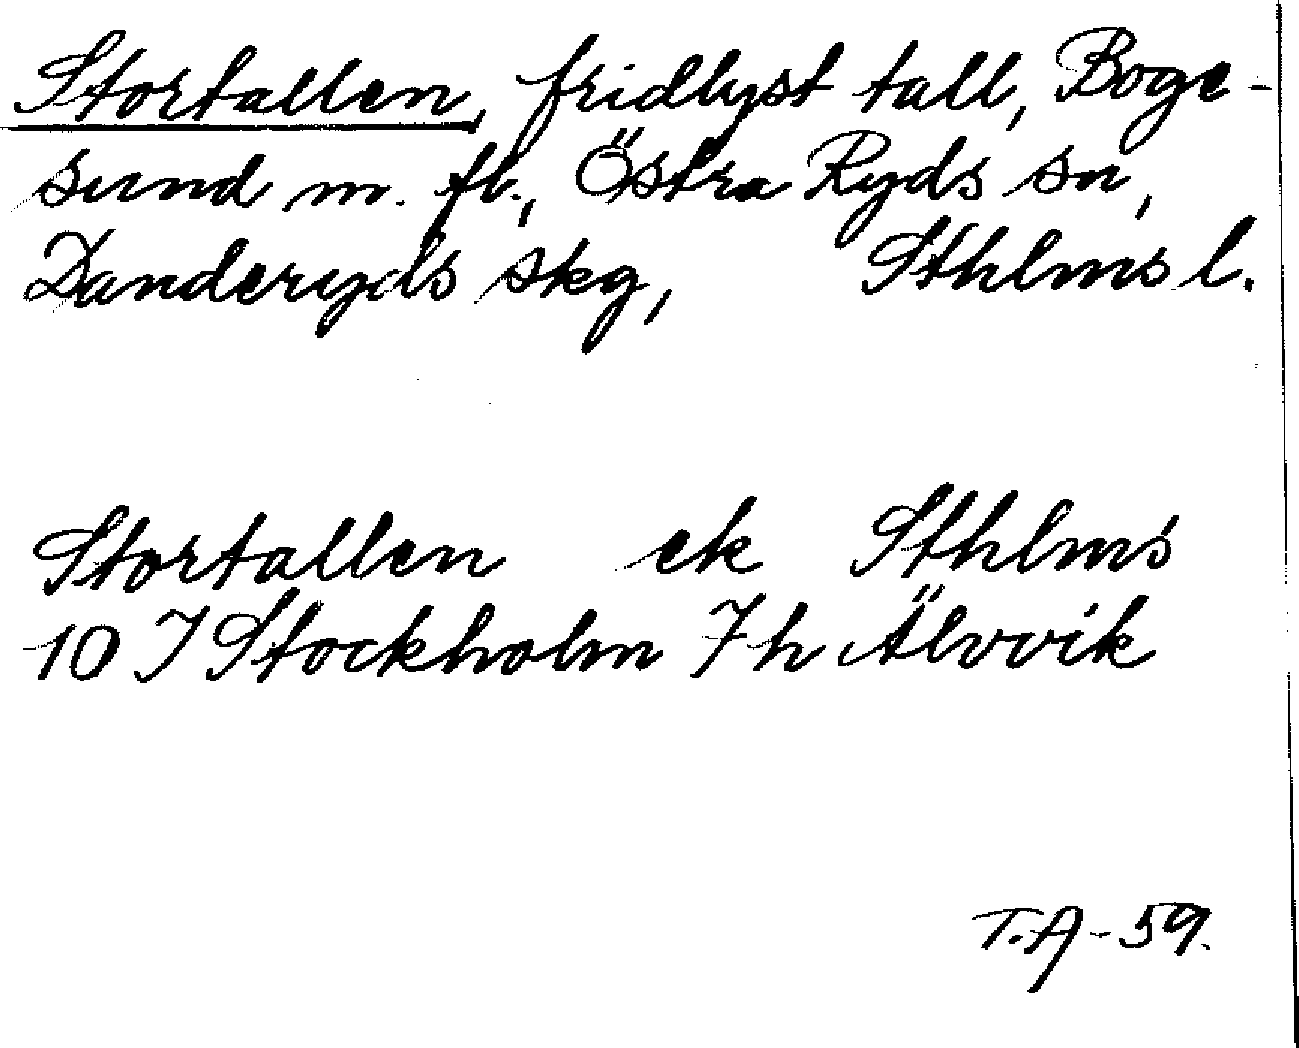 Stortallen, fridlyst tall, Boge-
sund m. fl., Östra Ryds sn,
Danderyds skg, Sthlms l.
Stortallen ek Sthlms
10 I Stockholm 7 h Älvvik
T.A-59.